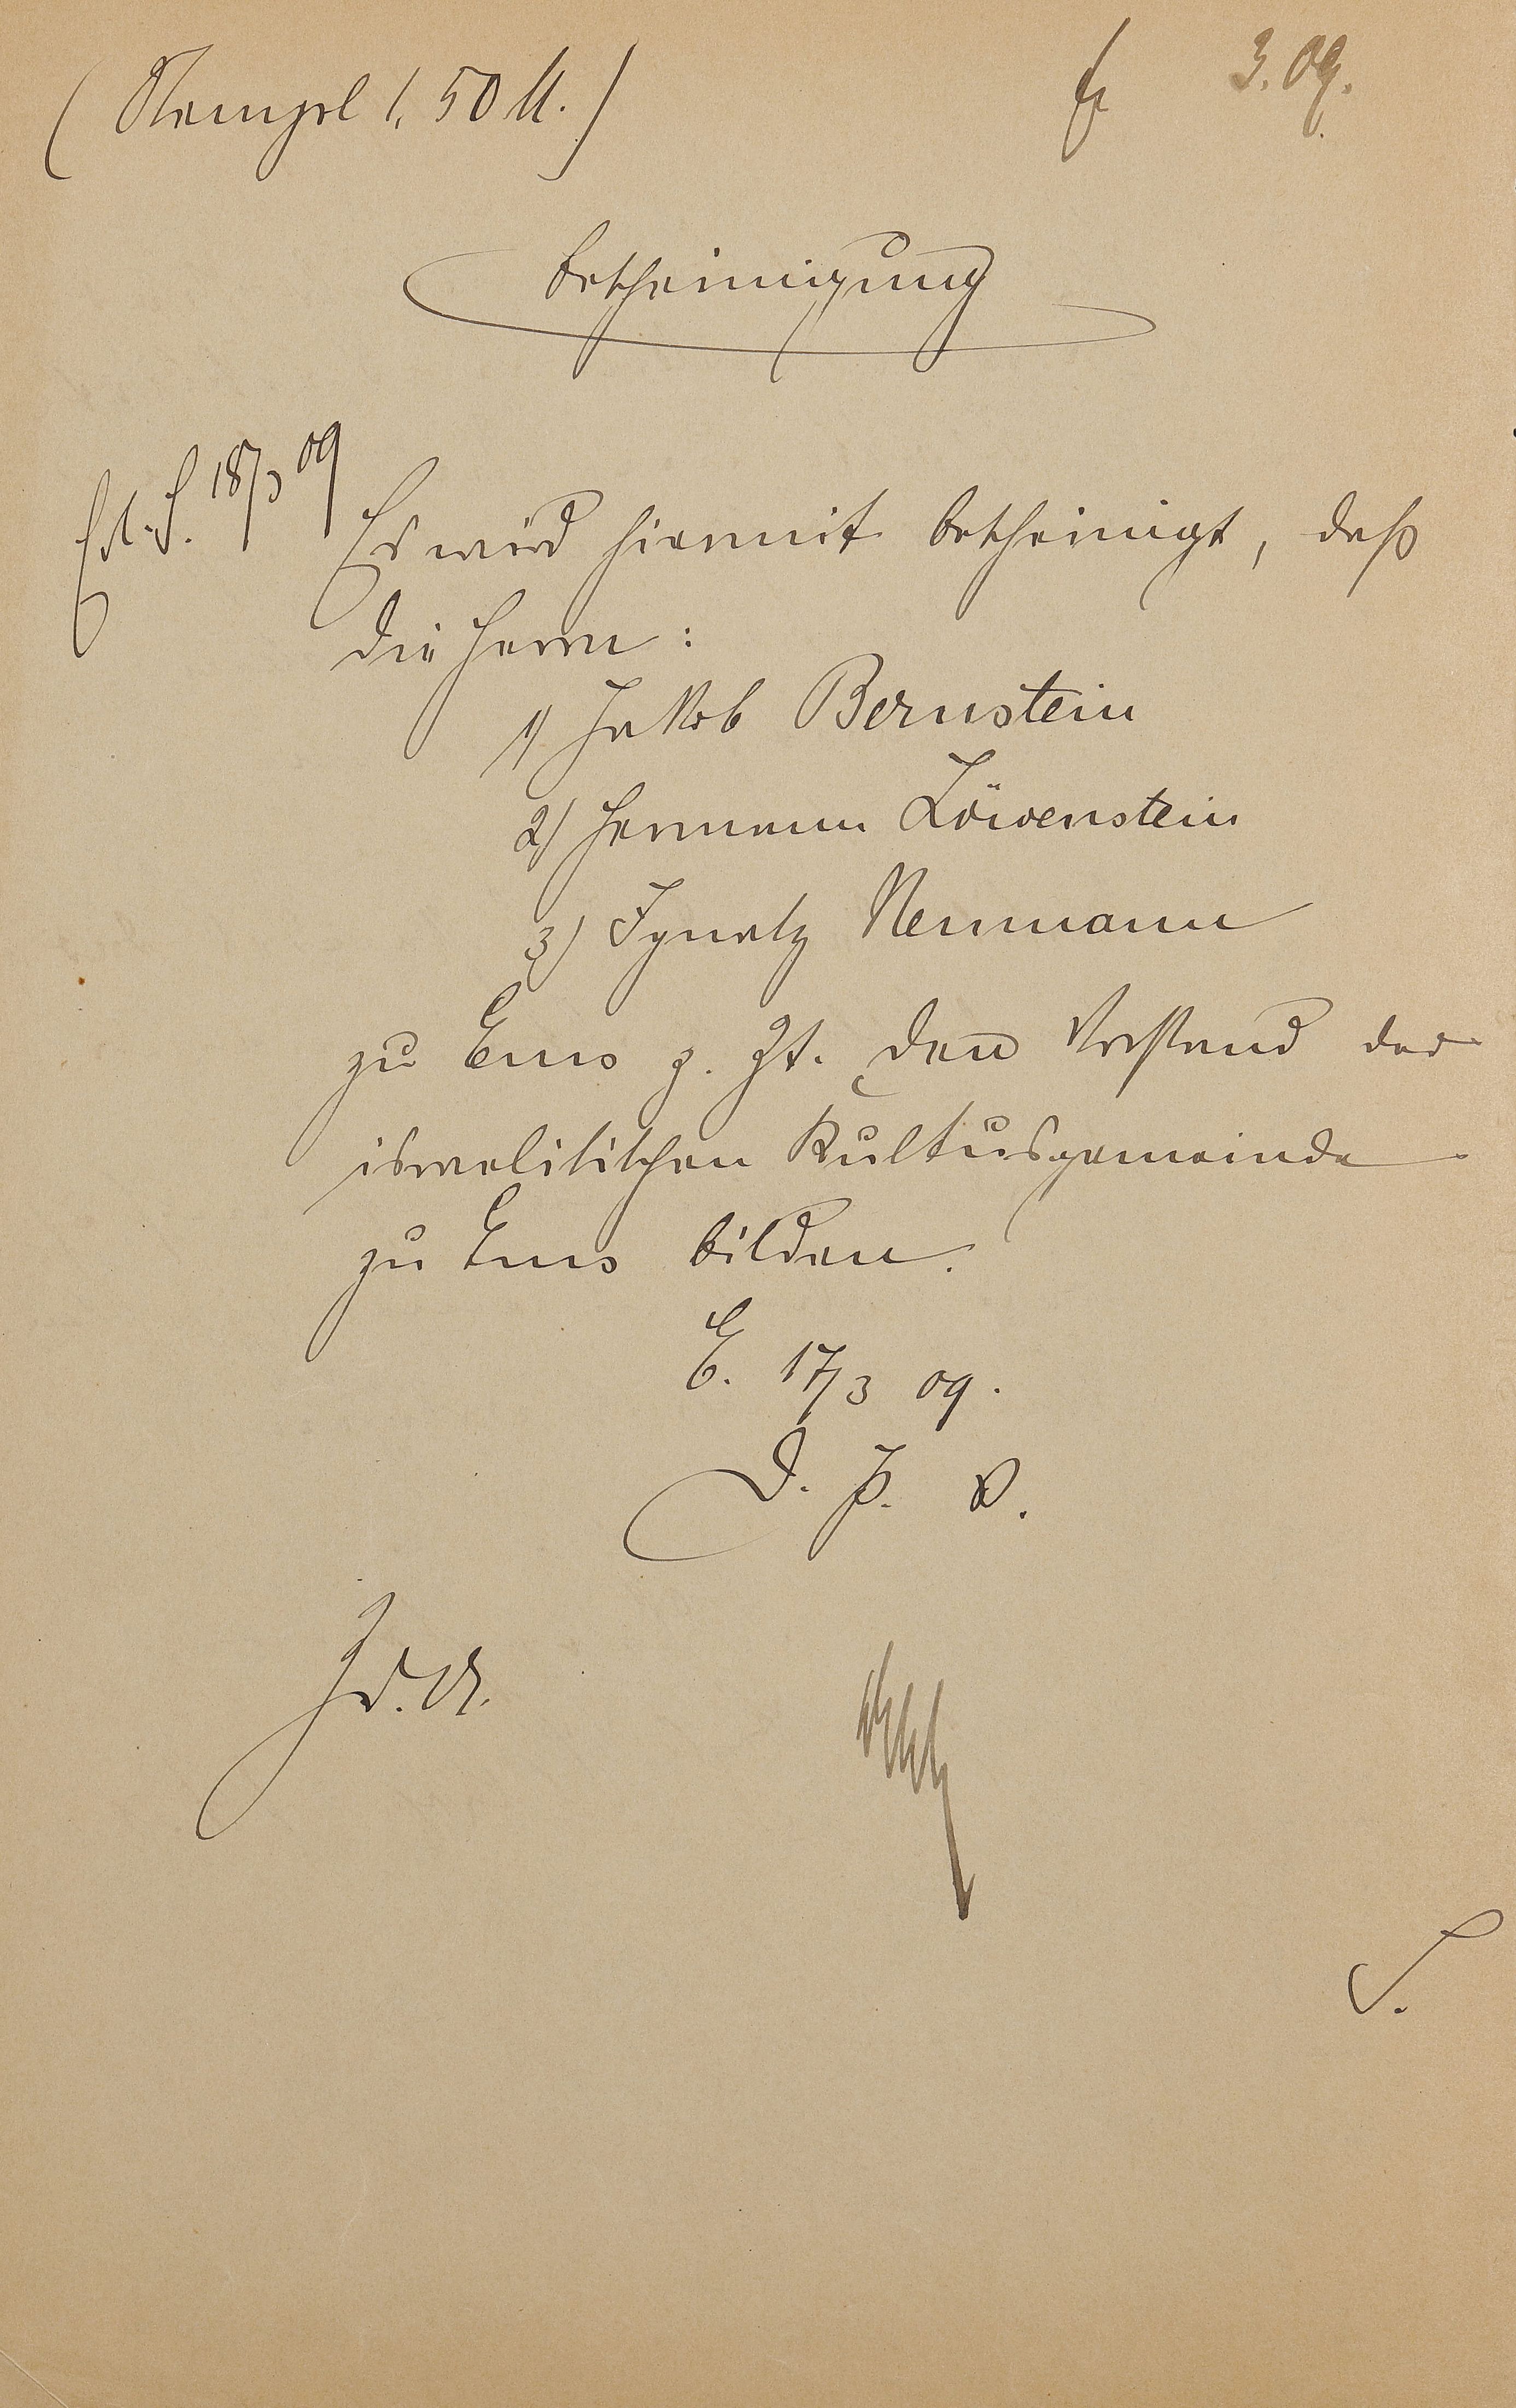 (Stempel 1,50 M.)
3. 09.
Bescheinigung
18/3 09
Es wird hiermit bescheinigt, daß
die Herrn:
1) Jakob Bernstein
2) Hermann Löwenstein
3) Ignatz Neumann
zu Ems z. Zt. den Vorstand der
israelitischen Kultusgemeinde
zu Ems bilden.
E. 17/3 09.
D. P. V.
Z. d. A.